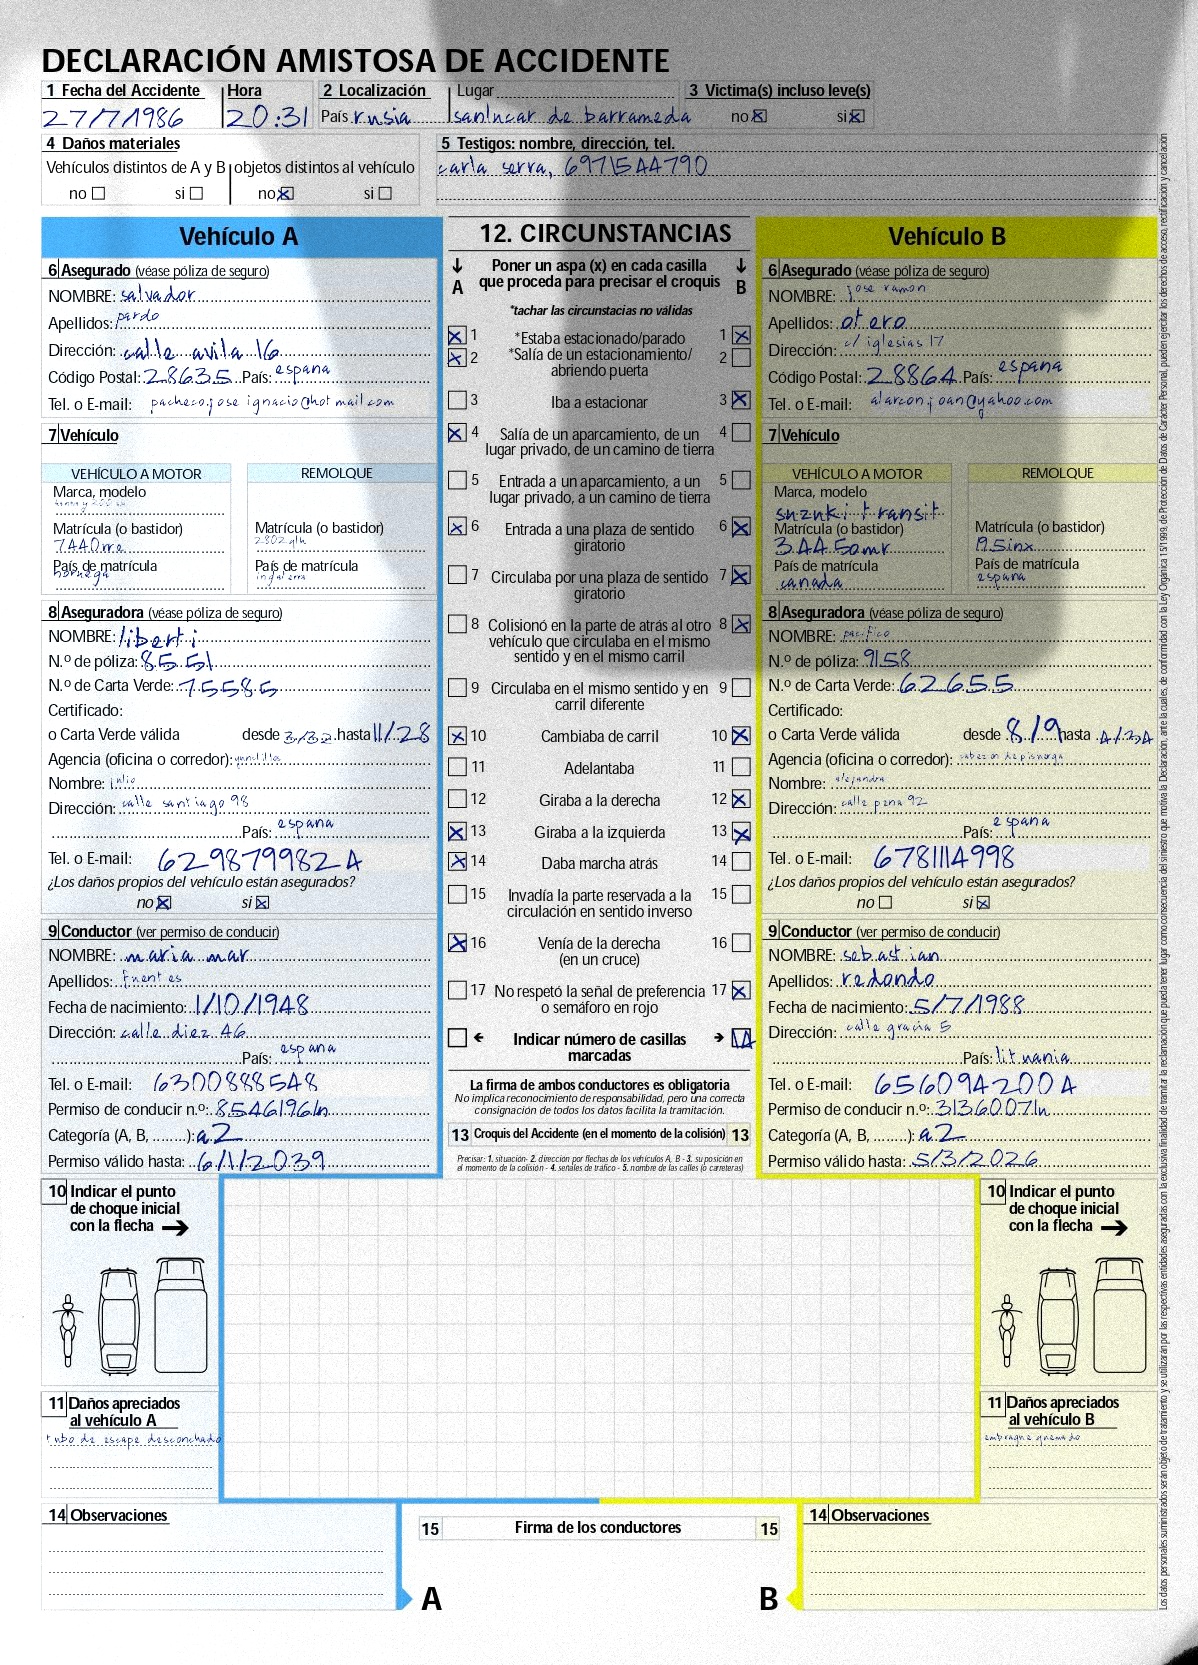 DECLARACIÓN AMISTOSA DE ACCIDENTE
1 Fecha del Accidente Hora 2 Localización Lugar 3 Victima(s) incluso leve(s)
27/7/1986 20:31 País rusia sanlucar de barrameda no si
4 Daños materiales 5 Testigos: nombre, dirección, tel.
Vehículos distintos de A y B objetos distintos al vehículo carla serra, 6971544790
no si no si
Vehículo A
6 Asegurado (véase póliza de seguro)
NOMBRE: salvador
Apellidos: pardo
Dirección: calle avila 16
Código Postal: 28635 País: espana
Tel. o E-mail: pacheco.jose ignacio@hotmail.com
7 Vehículo
VEHÍCULO A MOTOR REMOLQUE
Marca, modelo
Matrícula (o bastidor) Matrícula (o bastidor)
7440rra 2802glh
País de matrícula País de matrícula
noruega inglaterra
8 Aseguradora (véase póliza de seguro)
NOMBRE: liberti
N.º de póliza: 8551
N.º de Carta Verde: 75585
Certificado:
o Carta Verde válida desde 3/32 hasta 11/28
Agencia (oficina o corredor):
Nombre: julio
Dirección: calle santiago 98
País: espana
Tel. o E-mail: 629879982A
¿Los daños propios del vehículo están asegurados?
no si
9 Conductor (ver permiso de conducir)
NOMBRE: maria mar
Apellidos: fuentes
Fecha de nacimiento: 1/10/1948
Dirección: calle diez 46
País: espana
Tel. o E-mail: 6300888548
Permiso de conducir n.º: 8546196ln
Categoría (A, B, ........): a2
Permiso válido hasta: 6/1/2039
12. CIRCUNSTANCIAS
A Poner un aspa (x) en cada casilla que proceda para precisar el croquis B
*tachar las circunstacias no válidas
1 *Estaba estacionado/parado 1
2 *Salía de un estacionamiento/ 2
abriendo puerta
3 Iba a estacionar 3
4 Salía de un aparcamiento, de un 4
lugar privado, de un camino de tierra
5 Entrada a un aparcamiento, a un 5
lugar privado, a un camino de tierra
6 Entrada a una plaza de sentido 6
giratorio
7 Circulaba por una plaza de sentido 7
giratorio
8 Colisionó en la parte de atrás al otro 8
vehículo que circulaba en el mismo
sentido y en el mismo carril
9 Circulaba en el mismo sentido y en 9
carril diferente
10 Cambiaba de carril 10
11 Adelantaba 11
12 Giraba a la derecha 12
13 Giraba a la izquierda 13
14 Daba marcha atrás 14
15 Invadía la parte reservada a la 15
circulación en sentido inverso
16 Venía de la derecha 16
(en un cruce)
17 No respetó la señal de preferencia 17
o semáforo en rojo
Indicar número de casillas 14
marcadas
La firma de ambos conductores es obligatoria
No implica reconocimiento de responsabilidad, pero una correcta
consignación de todos los datos facilita la tramitación.
13 Croquis del Accidente (en el momento de la colisión) 13
Precisar: 1. situación- 2. dirección por flechas de los vehículos A, B - 3. su posición en
el momento de la colisión - 4. señales de tráfico - 5. nombre de las calles (o carreteras)
Vehículo B
6 Asegurado (véase póliza de seguro)
NOMBRE: jose ramon
Apellidos: otero
Dirección: c/ iglesias 17
Código Postal: 28864 País: espana
Tel. o E-mail: alarconjoan@yahoo.com
7 Vehículo
VEHÍCULO A MOTOR REMOLQUE
Marca, modelo
suzuki transit
Matrícula (o bastidor) Matrícula (o bastidor)
3445amr 195inx
País de matrícula País de matrícula
canada espana
8 Aseguradora (véase póliza de seguro)
NOMBRE: pacifico
N.º de póliza: 9158
N.º de Carta Verde: 62655
Certificado:
o Carta Verde válida desde 8/9 hasta 4/34
Agencia (oficina o corredor): cabezon de pisuerga
Nombre: alejandra
Dirección: calle pena 92
País: espana
Tel. o E-mail: 6781114998
¿Los daños propios del vehículo están asegurados?
no si
9 Conductor (ver permiso de conducir)
NOMBRE: sebastian
Apellidos: redondo
Fecha de nacimiento: 5/7/1988
Dirección: calle gracia 5
País: lituania
Tel. o E-mail: 656094200A
Permiso de conducir n.º: 3136007ln
Categoría (A, B, ........): a2
Permiso válido hasta: 5/3/2026
10 Indicar el punto
de choque inicial
con la flecha
11 Daños apreciados
al vehículo A
tubo de escape desconchado
14 Observaciones
15 Firma de los conductores 15
A B
10 Indicar el punto
de choque inicial
con la flecha
11 Daños apreciados
al vehículo B
embrague quemado
14 Observaciones
Los datos personales suministrados serán objeto de tratamiento y se utilizarán por las respectivas entidades aseguradas con la exclusiva finalidad de tramitar la reclamación que pueda tener lugar como consecuencia del siniestro que motiva la Declaración, ante la cuales, de conformidad con la Ley Orgánica 15/1999, de Protección de Datos de Carácter Personal, pueden ejercitar los derechos de acceso, rectificación y cancelación